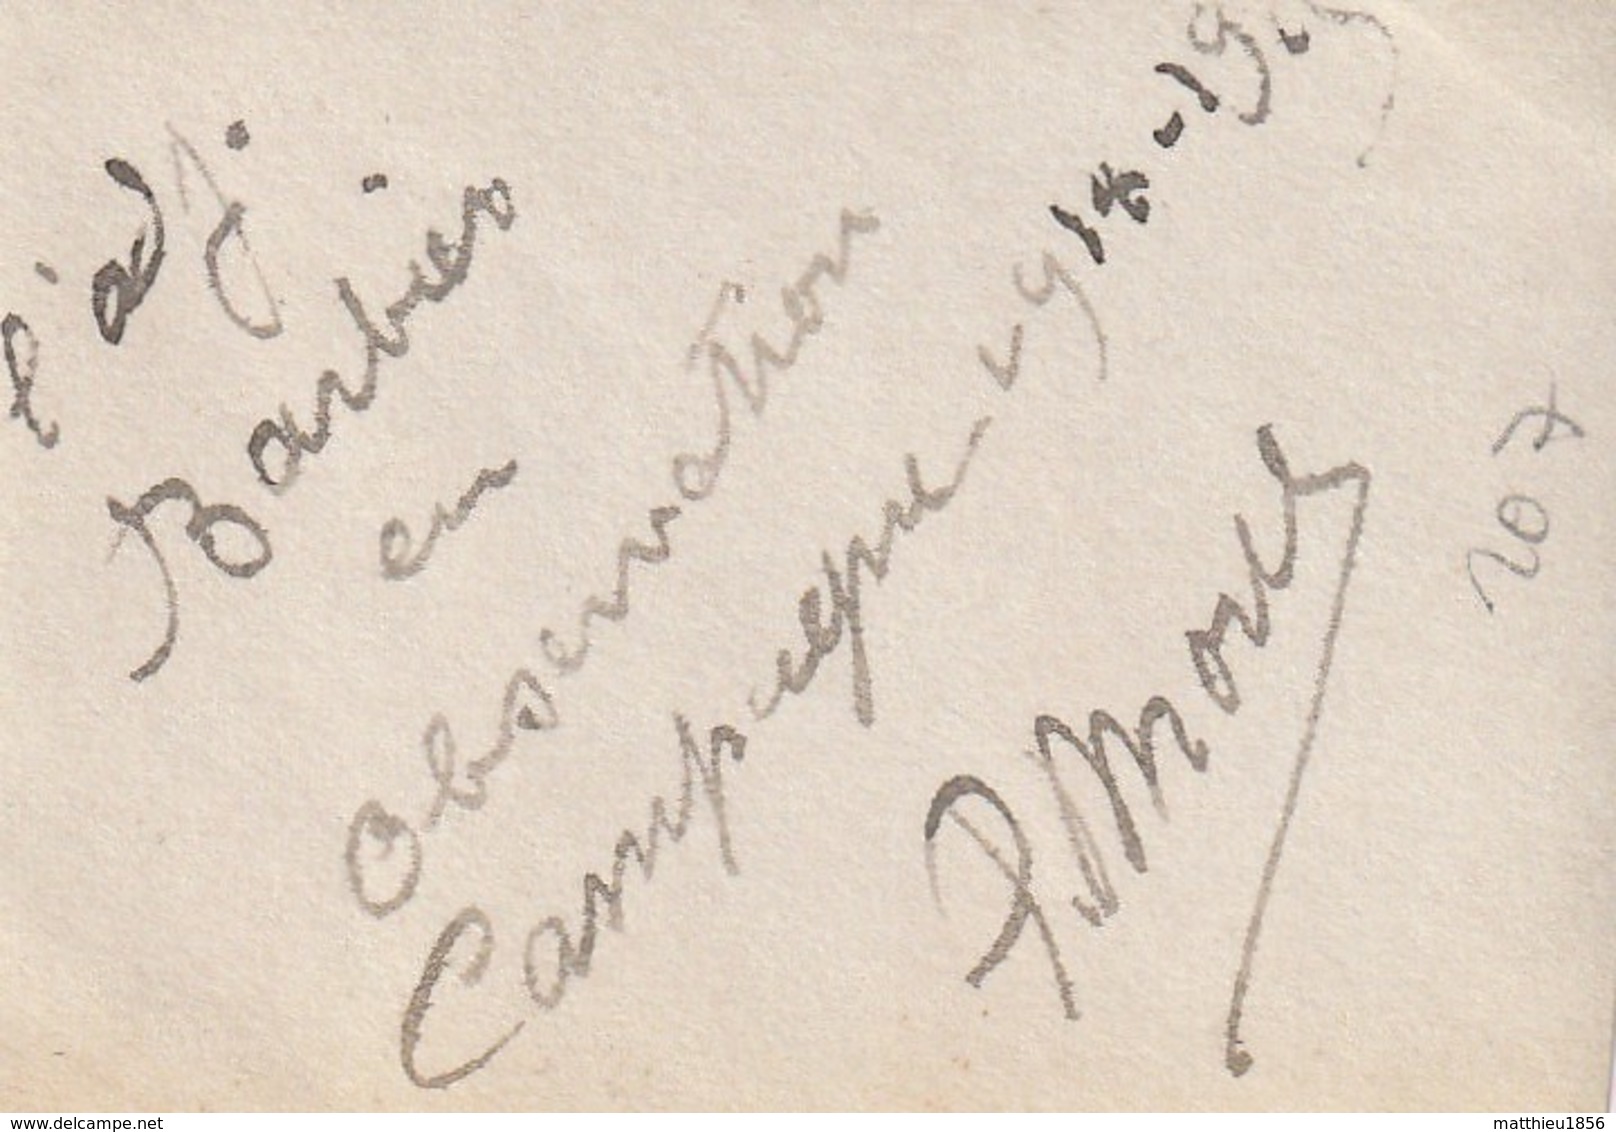 l'adj.
Barbier
en
observation
Campagne 1914-19
207
delcampe.net
matthieu1856